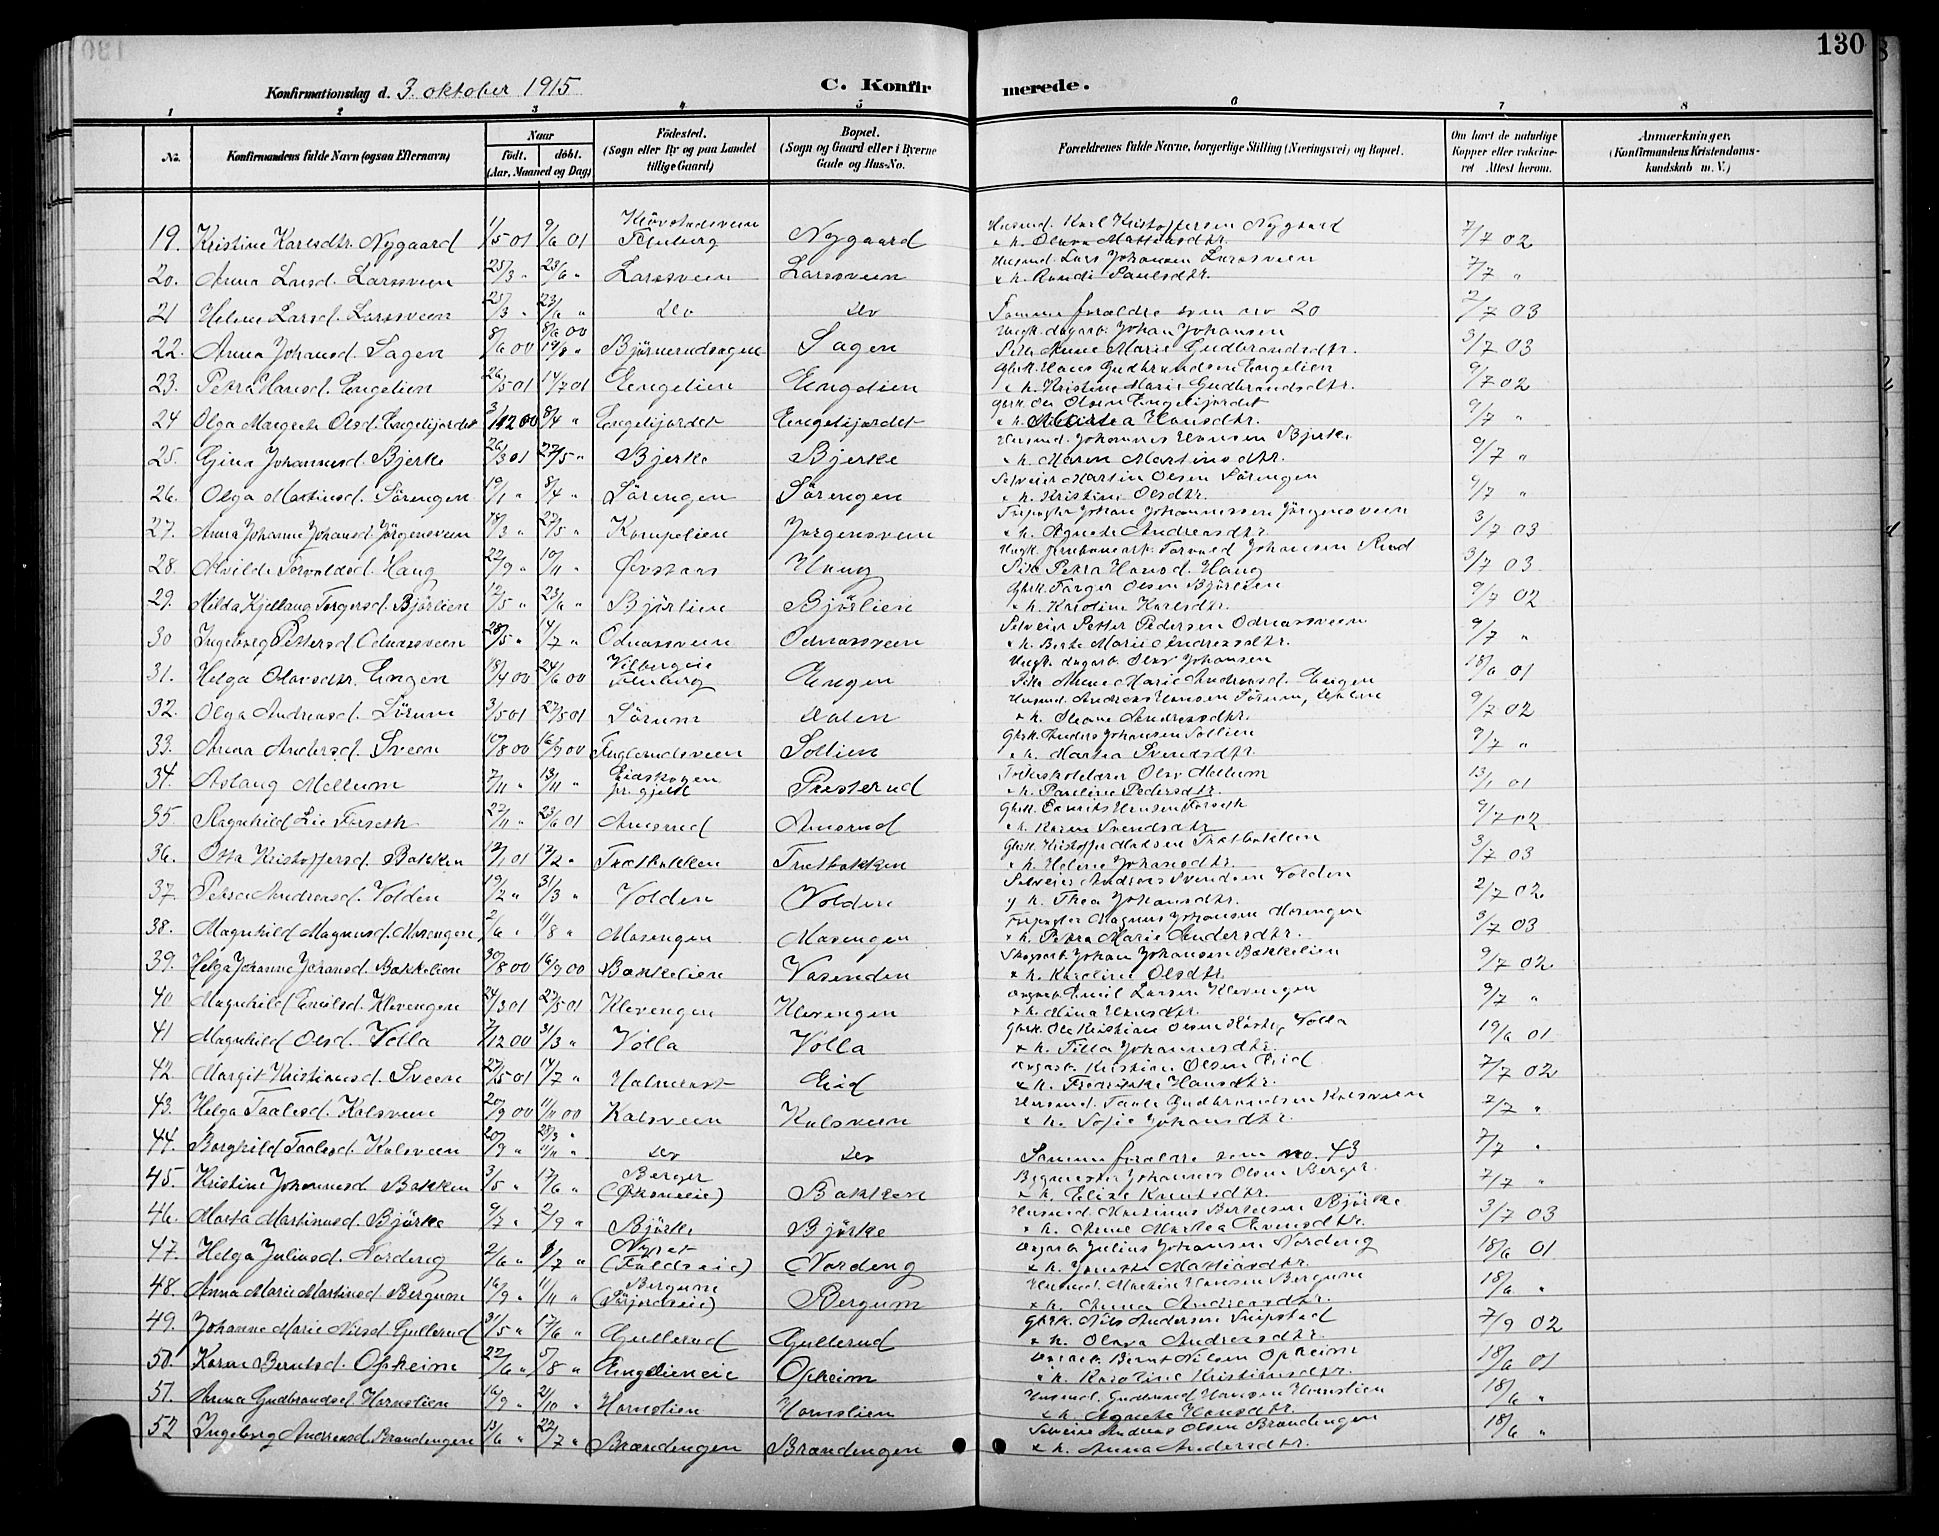 130
Konfirmationsdag d. 3. oktober 1915 C. Konfirmerede.
1 2 3 4 5 6 7 8
No. Konfirmandens fulde Navn (ogsaa Efternavn) Naar födt. döbt. (Aar, Maaned og Dag) Födested. (Sogn eller By og paa Landet tillige Gaard) Bopæl. (Sogn og Gaard eller i Byerne Gade og Hus-No. Forældrenes fulde Navne, borgerlige Stilling (Næringsvei) og Bopæl. Om havt de naturlige Kopper eller vakcineret Attest herom. Anmærkninger, (Konfirmandens Kristendomskundskab m. V.)
19. Kristine Karlsdtr. Nygaard 1/5 01 9/6 01 Nygaard Husmd. Karl Kristoffersen Nygaard 7/7 02
& h. Olava Mattiasdtr.
20. Anna Larsd. Larsveen 25/3 " 23/6 " Larsveen Larsveen Husmd. Lars Johansen Larsveen 7/7 "
& h. Randi Paulsdtr.
21 Helene Larsd. Larsveen 25/3 " 23/6 " do do Samme forældre som no 20 7/7 03
22. Anna Johansd. Sagen 8/6 00 19/8 " Sagen Ungk. dagarb. Johan Johansen 3/7 03
Pike Anne Marie Gudbrandsdtr.
23. Petra Hansd. Engelien 26/5 01 14/7 01 Engelien Engelien Gbrk. Hans Gudbrandsen Engelien 9/7 02
& h. Kristine Marie Gudbrandsdtr.
24 Olga Margrete Olsd. Engelijordet 3/12 00 8/4 " Engelijordet Engelijordet Gbrk. Ole Olsen Engelijordet 9/7 "
& h. Martea Hansdtr.
25. Gina Johannesd. Bjerke 26/3 01 27/5 " Bjerke Bjerke Husmd. Johannes Hansen Bjerke 9/7 "
& h. Maren Martinsdtr.
26. Olga Martinsd. Sörengen 19/1 " 8/4 " Sörengen Sörengen Selveier Martin Olsen Sörengen 9/7 "
& h. Kristine Olsdtr.
27. Anna Johanne Johansd. Jörgensveen 14/3 " 27/5 " Kompelien Jörgensveen Johan Johannessen Jörgensveen 3/7 03
& h. Agnete Andreasdtr.
28. Alvilde Torvaldsd. Haug 22/9 " 10/11 " Haug Ungk. Torvald Johansen Ruud 3/7 03
Pike Petra Hansd. Haug
29. Milda Kjellaug Torgersd. Björlien 12/5 " 23/6 " Björlien Björlien Gbrk. Torger Olsen Björlien 9/7 02
& h. Karoline Karlsdtr.
30 Ingeborg Pettersd. Odnæsveen 28/5 " 14/7 " Odnæsveen Odnæsveen Selveier Petter Pedersen Odnæsveen 9/7 "
& h. Berte Marie Andreasdtr.
31. Helga Olavsdtr. Engen 18/4 00 24/6 00 Engen Ungk. dagarb. Olav Johansen 18/6 01
Pike Anne Marie Andreasd. Engen
32. Olga Andreasd. Sörum 3/5 01 27/5 01 Sörum Dalen Husmd. Andreas Hansen Sörum, Dalen 9/7 02
& h. Andreasdtr.
33. Anna Andersd. Sveen 10/8 00 16/9 00 Fuglerudsveen Sollien Gbrk. Anders Johansen Sollien 9/7 "
& h. Martea Svendsdtr.
34. Aslaug Mellum 7/11 " 13/11 " Eidskogen pr.gjeld Presterud Olav Mellum 13/1 01
& h. Pauline Pedersdtr.
35. Ragnhild Lie Forseth 27/11 " 23/6 01 Amsrud Amsrud Gbrk. Hansen Forseth 9/7 02
& h. Karen Svendsdtr.
36. Otta Kristoffersd. Bakken 12/1 01 17/2 " Trætbakken Trætbakken Gbrk. Kristoffer Madsen Trætbakken 3/7 03
& h. Helene Johansdtr.
37. Petra Andreasd. Volden 19/2 " 31/3 " Volden Volden Selveier Andreas Svendsen Volden 2/7 02
& h. Thea Johansdtr.
38. Magnhild Magnusd. Mosengen 2/6 " 11/8 " Mosengen Mosengen Magnus Johansen Mosengen 3/7 03
& h. Petra Marie Andersdtr.
39. Helga Johanne Johansd. Bakkelien 30/8 00 16/9 00 Bakkelien Vasenden Skogarb. Johan Johansen Bakkelien 9/7 02
& h. Karoline Olsdtr.
40 Magnhild Emilsd. Klevengen 24/3 01 27/5 01 Klevengen Klevengen Dagarb. Emil Larsen Klevengen 9/7 "
& h. Mina Hansdtr.
41 Magnhild Olsd. Volla 7/12 00 31/3 " Volla Volla Gbrk. Ole Kristian Olsen Volla 19/6 01
& h. Tilla Johannesdtr.
42. Margit Kristiansd. Sveen 27/5 01 14/7 " Eid Dagarb. Kristian Olsen Eid 7/7 02
& h. Fredrikke Hansdtr.
43. Helga Taalesd. Kalsveen 20/9 00 11/11 00 Kalsveen Kalsveen Husmd. Taale Gudbrandsen Kalsveen 7/7 "
& h. Sofie Johansdtr.
44. Borghild Taalesd. Kalsveen 20/9 " 11/11 " do do Samme forældre som no. 43 7/7 "
45. Kristine Johannesd. Bakken 3/5 " 17/6 " Berger Bakken Bygmester Johannes Olsen Berger 7/7 "
& h. Elise Knutsdtr.
46. Marta Martinusd. Björke 9/7 " 2/9 " Björke Björke Husmd. Martinus Berntsen Björke 3/7 03
& h. Anne Martea Evensdtr.
47. Helga Juliusd. Nordeng 2/6 " 8/7 " Nordeng Dagarb. Julius Johansen Nordeng 18/6 01
& h. Jonette Mattiasdtr.
48. Anna Marie Martinsd. Bergum 16/9 " 11/11 " Bergum Bergum Husmd. Martin Hansen Bergum 18/6 "
& h. Anna Andreasdtr.
49. Johanne Marie Nilsd. Gullerud 31/5 " 17/6 " Gullerud Gullerud Gbrk. Nils Andersen 7/9 02
& h. Olava Andreasdtr.
50. Karen Berntsd. Opheim 22/6 " 5/8 " Engelieneie Opheim Dagarb. Bernt Nilsen Opheim 18/6 01
& h. Karoline Kristiansdtr.
51. Anna Gudbrandsd. Hornslien 16/9 " 2/10 " Hornslien Hornslien Husmd. Gudbrand Hansen Hornslien 18/6 "
& h. Agnete Hansdtr.
52 Ingeborg Andreasd. Brændengen 13/6 " 22/7 " Brændengen Brændengen Selveier Andreas Olsen Brændengen 18/6 "
& h. Anna Andersdtr.